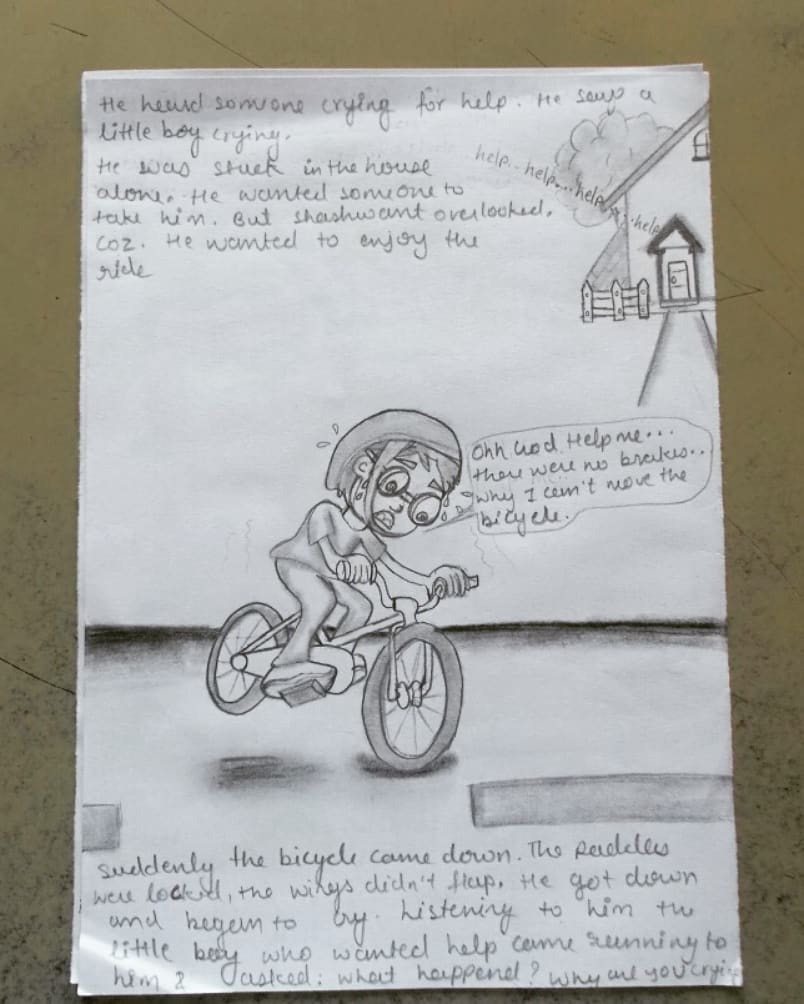 He heard someone crying for help. He saw a
little boy crying.
He was stuck in the house
alone. He wanted someone to
take him. But Shashwant overlooked.
Coz. He wanted to enjoy the
ride
help.. help... help.... help
Ohh God. Help me...
there were no breakes..
why I can't move the
bicycle.
Suddenly the bicycle came down. The Paddles
were locked, the wings didn't flap. He got down
and began to cry. Listening to him the
little boy who wanted help came running to
him & asked: what happend? Why are you cryin